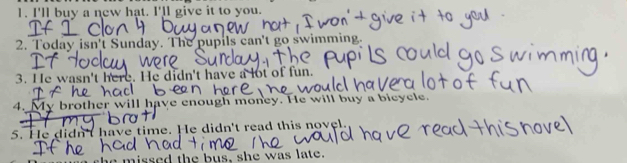 1. I'll buy a new hat. I'll give it to you.
If I don't buy a new hat, I won't give it to you.
2. Today isn't Sunday. The pupils can't go swimming.
If today were Sunday, the pupils could go swimming.
3. He wasn't here. He didn't have a lot of fun.
If he had been here, he would have a lot of fun
4. My brother will have enough money. He will buy a bicycle.
If my brot
5. He didn't have time. He didn't read this novel.
If he had had time, he would have read this novel
she missed the bus, she was late.